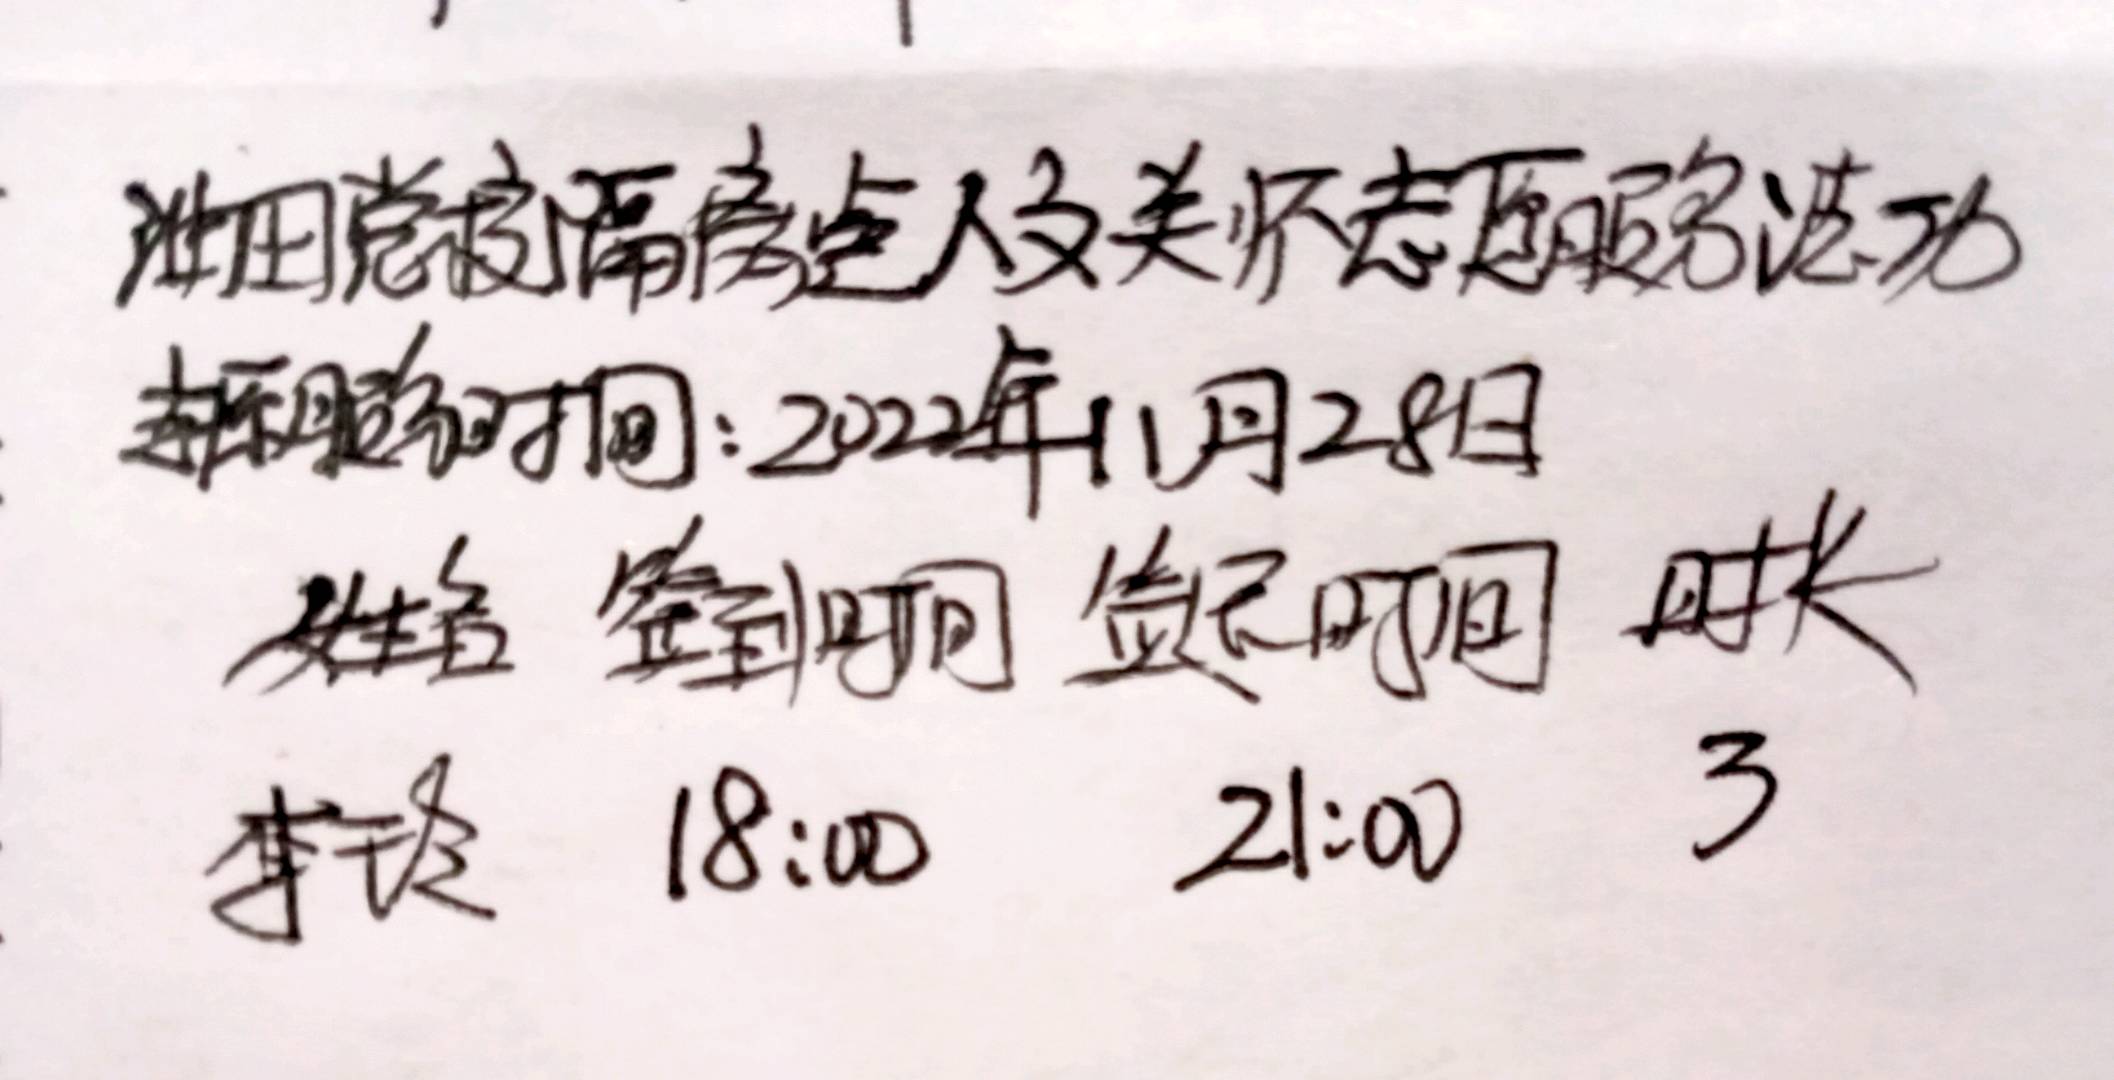 油田党校隔离点人文关怀志愿服务活动
志愿服务时间:2022年11月28日
姓名 签到时间 签退时间 时长
李玲 18:00 21:00 3